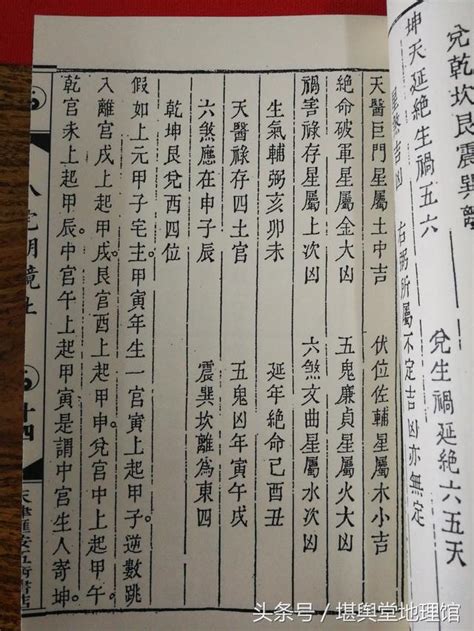 兌乾坎艮震巽離
坤天延絕生禍五六
兌生禍延絕六五天
煞吉凶
右弼所屬不定吉凶亦無定
天醫巨門星屬土中吉
伏位佐輔星屬木小吉
絕命破軍星屬金大凶
五鬼廉貞星屬火大凶
禍害祿存星屬土次凶
六煞文曲星屬水次凶
生氣輔弼亥卯未
延年絕命己酉丑
天醫祿存四土宮
五鬼凶年寅午戌
六煞應在申子辰
震巽坎離為東四
乾坤艮兌西四位
假如上元甲子宅主甲寅年生一宮寅上起甲子逆數跳
入離宮戌上起甲戌艮宮酉上起甲申兌宮申上起甲午
乾宮未上起甲辰中宮午上起甲寅是謂中宮生人寄坤
八宅明鏡
十四
頭条号/堪舆堂地理馆